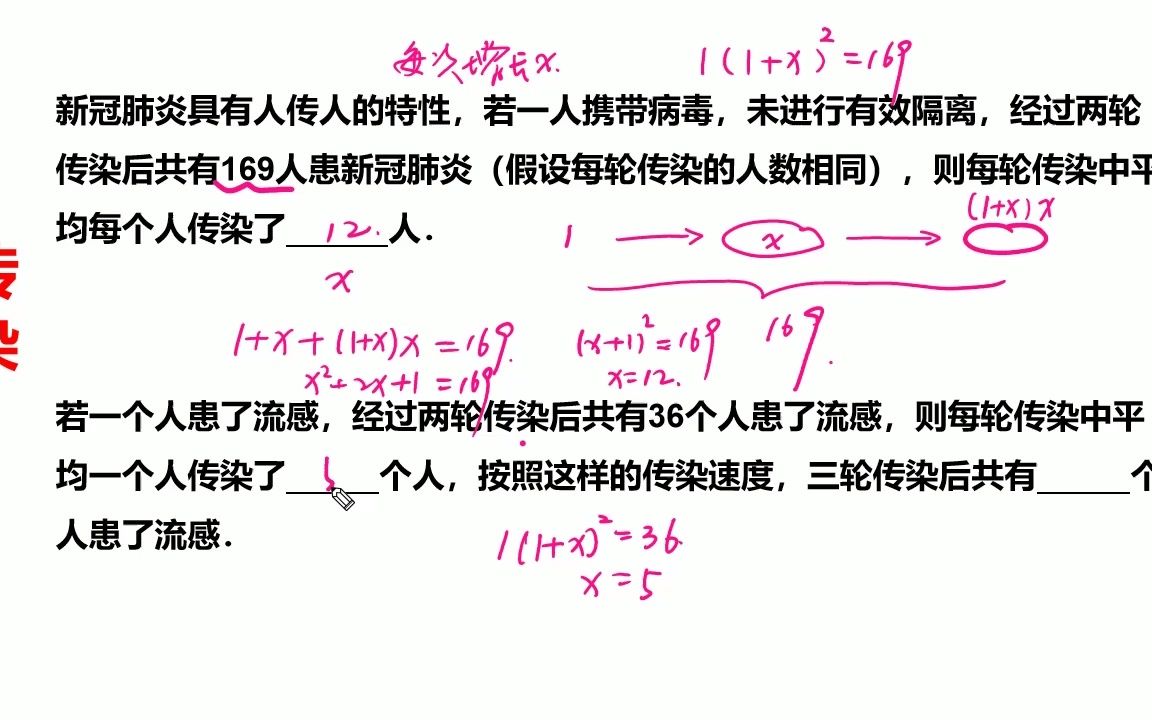 每次增长x.
1(1+x)²=169
新冠肺炎具有人传人的特性，若一人携带病毒，未进行有效隔离，经过两轮
传染后共有169人患新冠肺炎（假设每轮传染的人数相同），则每轮传染中平
均每个人传染了 12. 人．
x
1 → x → (1+x)x
169.
1+x+(1+x)x=169.
x²+2x+1=169
(x+1)²=169
x=12.
传
染
若一个人患了流感，经过两轮传染后共有36个人患了流感，则每轮传染中平
均一个人传染了______个人，按照这样的传染速度，三轮传染后共有______个
人患了流感．
1(1+x)²=36.
x=5